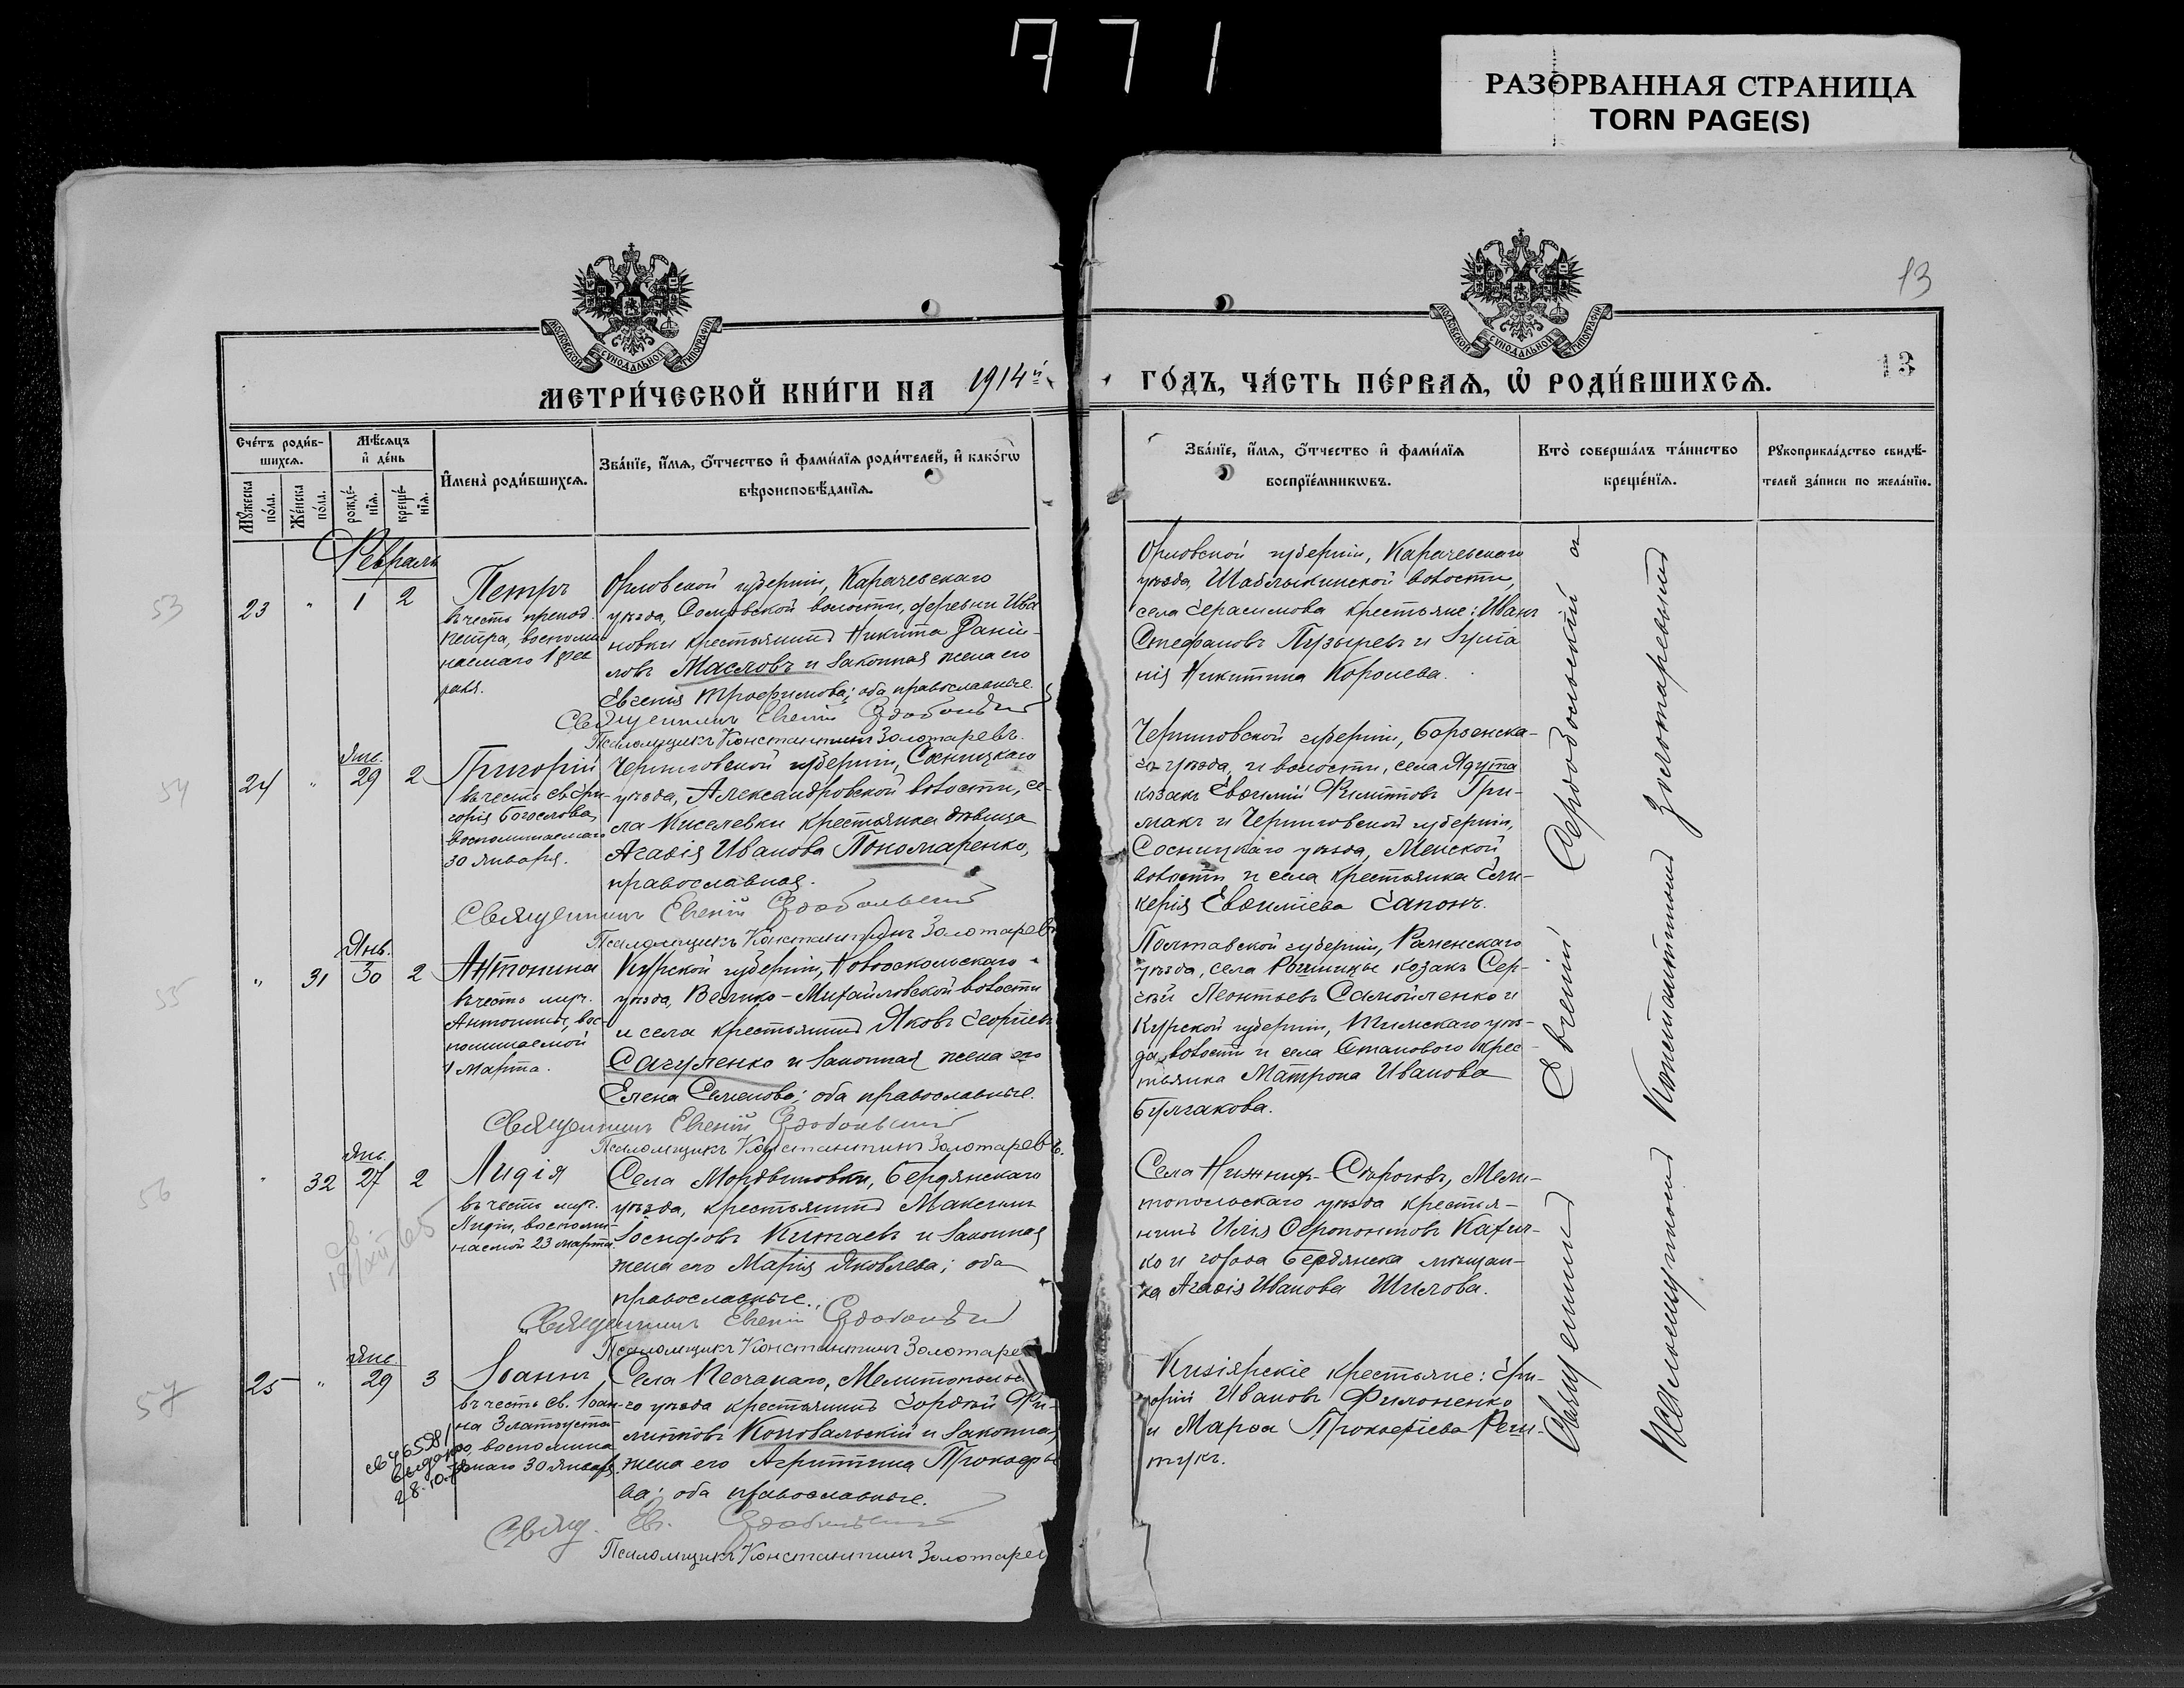 771
РАЗОРВАННАЯ СТРАНИЦА
TORN PAGE(S)
13
13
МОСКОВСКОЙ СѴНОДАЛЬНОЙ ТИПОГРАФІИ
МОСКОВСКОЙ СѴНОДАЛЬНОЙ ТИПОГРАФІИ
МЕТРИ́ЧЕСКОЙ КНИ́ГИ НА 1914й
ГО́ДЪ, ЧА́СТЬ ПЕ́РВАЯ, Ѡ҆ РОДИ́ВШИХСЯ.
Сче́тъ роди́в-
шихся.
Мѣ́сяцъ
и҆ де́нь
Му́жеска по́ла.
Же́нска по́ла.
рожде́-
нїя.
креще́-
нїя.
И҆мена̀ роди́вшихся.
Зва́нїе, и҆́мя, ѻ҆́тчество и҆ фами́лїя роди́телей, и҆ како́гѡ
вѣроисповѣ́данїя.
Зва́нїе, и҆́мя, ѻ҆́тчество и҆ фами́лїя
воспрїе́мникѡвъ.
Кто̀ соверша́лъ та́инство
креще́нїя.
Рукоприкла́дство свидѣ́-
телей за́писи по жела́нїю.
Февраль
53
23 " 1 2
Петръ
въ честь препод.
Петра, воспоми
наемаго 1 фев
раля.
Орловской губерніи, Карачевскаго
уѣзда, волости, деревни Ива
новки крестьянинъ Никита Даніи-
ловъ Масловъ и законная жена его
Евгенія Трофимова; оба православные.
Священникъ Евгеній Сердобольскій
Псаломщикъ Константинъ Золотаревъ.
Орловской губерніи, Карачевскаго
уѣзда, Шаблыкинской волости,
села Герасимова крестьяне: Иванъ
Стефановъ Пузыревъ и Еуѳа
нія Никитина Королева.
54
24 " Янв. 29 2
Григорій
въ честь св. Гри-
горія Богослова,
воспоминаемаго
30 Января.
Черниговской губерніи, Сосницкаго
уѣзда, Александровской волости, се-
ла Киселевки крестьянка дѣвица
Агаѳія Иванова Пономаренко,
православная.
Священникъ Евгеній Сердобольскій
Псаломщикъ Константинъ Золотаревъ
Черниговской губерніи, Борзенска-
го уѣзда, и волости, села Ядута
козакъ Евѳимій Филипповъ Гри-
макъ и Черниговской губерніи,
Сосницкаго уѣзда, Менской
волости и села крестьянка Гли-
керія Евѳиміева Гапонъ.
55
" 31 Янв. 30 2
Антонина
въ честь муч.
Антонины, вос-
поминаемой
1 Марта.
Курской губерніи, Новооскольскаго
уѣзда, Велико-Михайловской волости
и села крестьянинъ Яковъ Георгіевъ
Сагуленко и законная жена его
Елена Семенова; оба православные.
Священникъ Евгеній Сердобольскій
Псаломщикъ Константинъ Золотаревъ.
Полтавской губерніи, Роменскаго
уѣзда, села козакъ Сер-
гѣй Леонтьевъ Самойленко и
Курской губерніи, Тимскаго уѣз-
да, волости и села Становаго крес-
тьянка Матрона Иванова
Булгакова.
56
" 32 Янв. 27 2
Лидія
въ честь муч.
Лидіи, воспоми-
наемой 23 марта.
Села Мордвиновки, Бердянскаго
уѣзда, крестьянинъ Максимъ
Іосифовъ Китаевъ и законная
жена его Марія Яковлева; оба
православные.
Священникъ Евгеній Сердобольскій
Псаломщикъ Константинъ Золотарев
Села Нижнихъ-Сѣрогозъ, Мели-
топольскаго уѣзда крестья-
нинъ Илія Ѳеропонтовъ
ко и города Бердянска мѣщан-
ка Агаѳія Иванова Шилова.
57
25 " Янв. 29 3
Іоаннъ
въ честь св. Іоан-
на Златоуста-
го, воспомина
емаго 30 Января.
Села Песчанаго, Мелитопольс
го уѣзда крестьянинъ Гордѣй Фи-
липповъ Коновальскій и законная
жена его Агриппина Прокофье
ва; оба православные.
Свящ. Ев. Сердобольскій
Псаломщикъ Константинъ Золотарев
Кизіярскіе крестьяне: Гри-
горій Ивановъ Филоненко
и Марѳа Прокофіева Реш-
тукъ.
Священникъ Евгеній Сердобольскій
Псаломщикъ Константинъ Золотаревъ